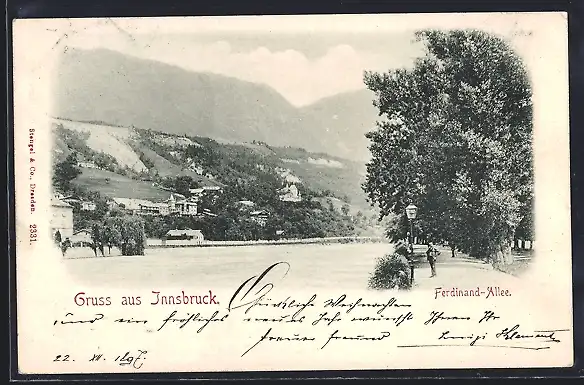 Stengel & Co., Dresden. 2331.
Gruss aus Innsbruck.
Ferdinand-Allee.
Glückliche Weihnachten
und ein fröhliches neues Jahr wünscht Ihnen Ihr
treuer Freund
22. XII. 1897.